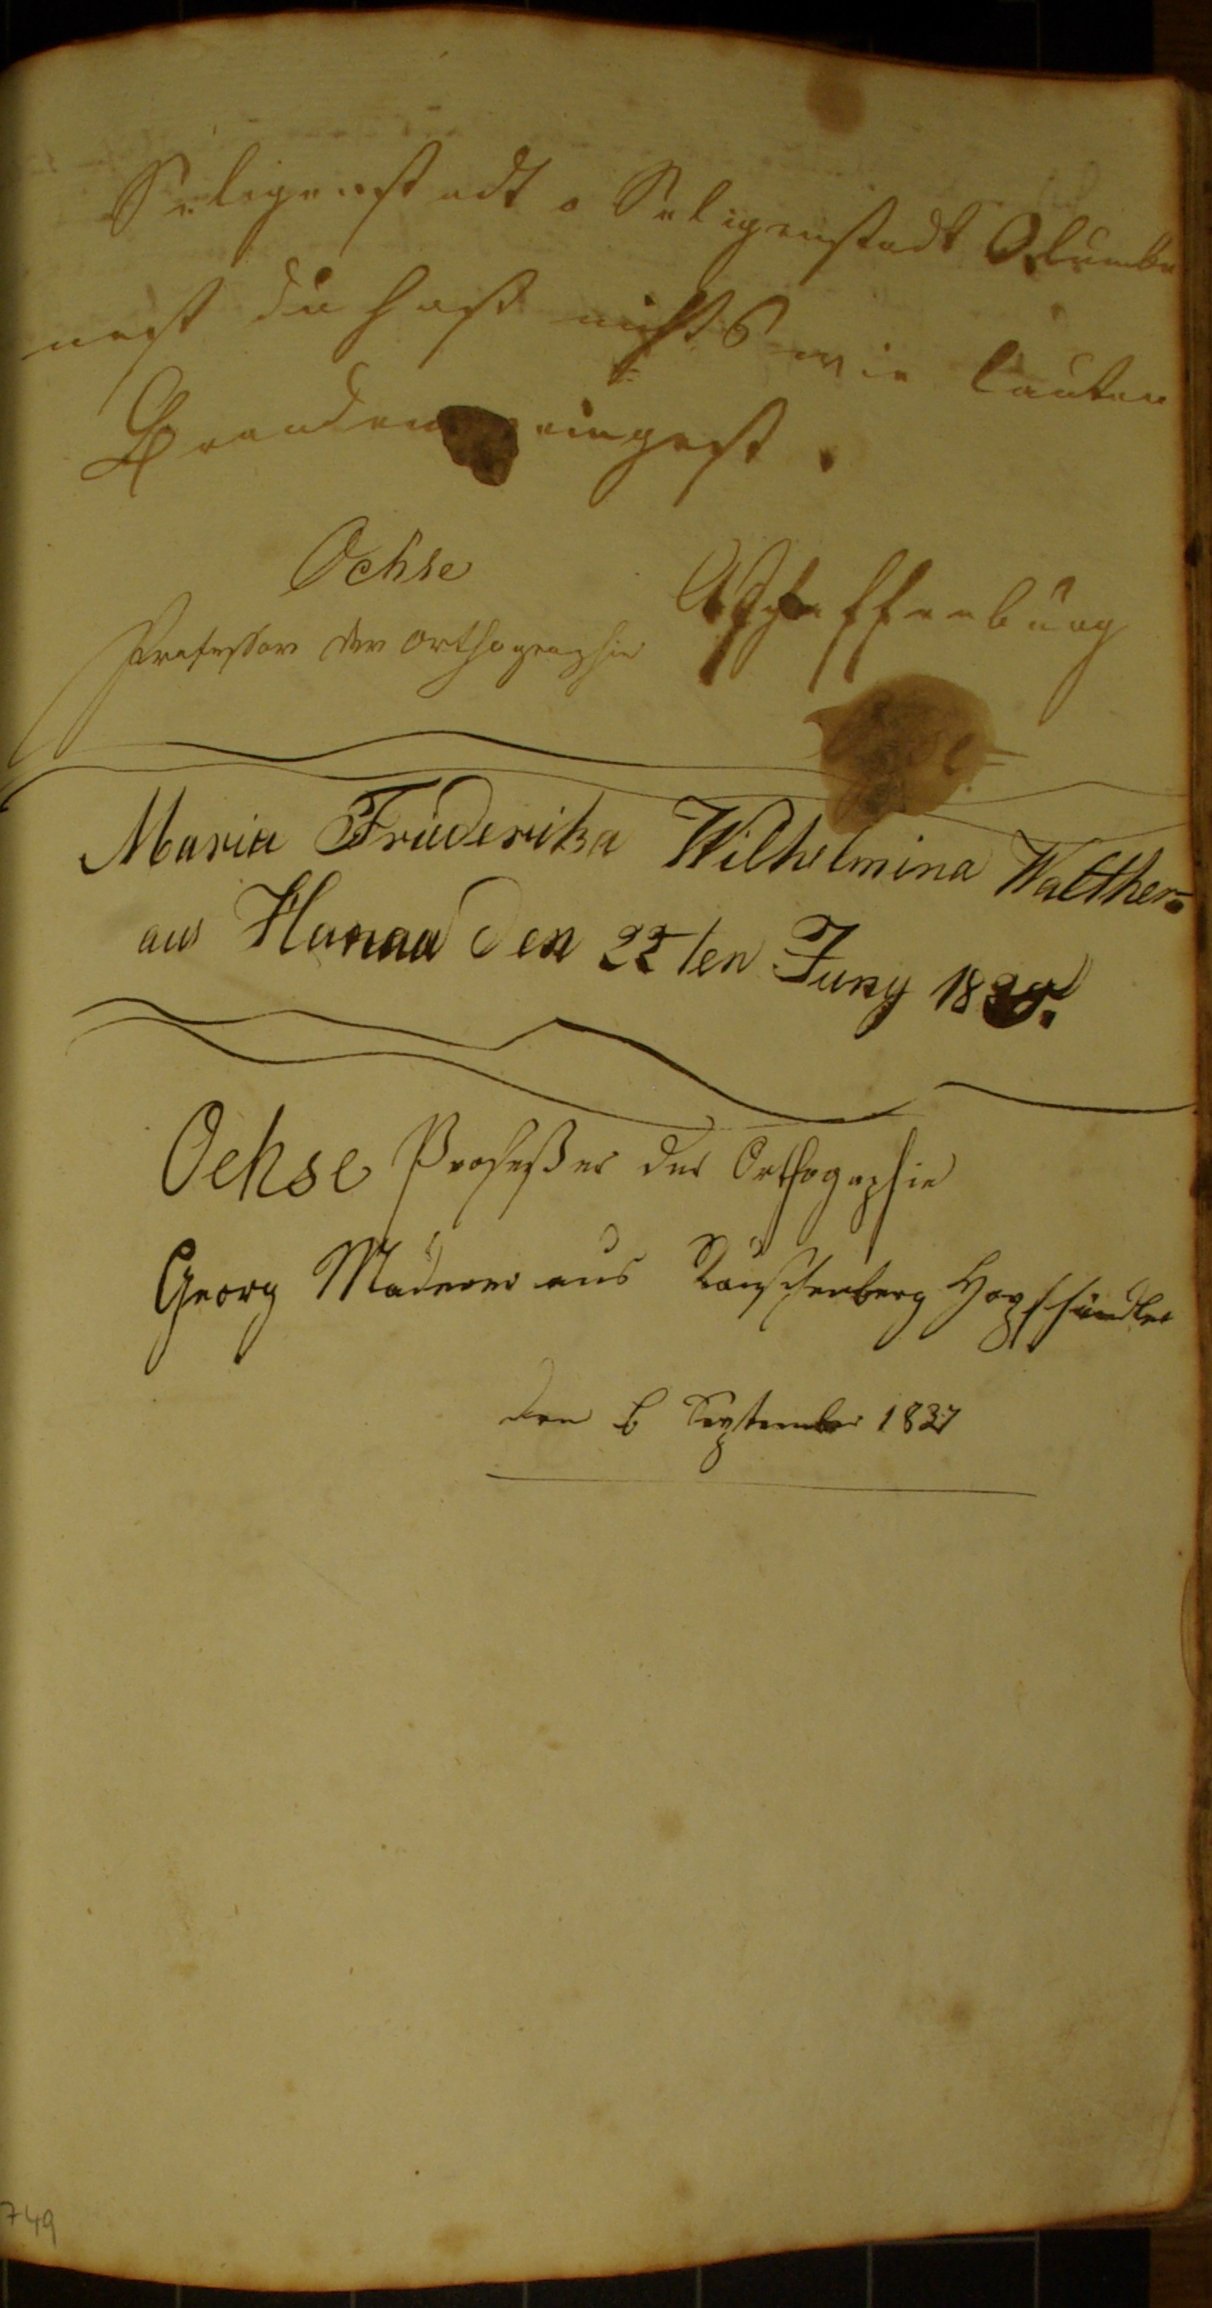 Seligenstadt o Seligenstadt
nest du hast nichts wie lauter
Branden eingest.
Ochse
Professor der orthographie
Aschaffenburg
Maria Friederika Wilhelmina Walther.
aus Hanau den 22ten Juny 18
Ochse Profeßer der Orthographie
Georg Maderer aus Rauschenberg Hopfhändler
den 6 September 1837
749